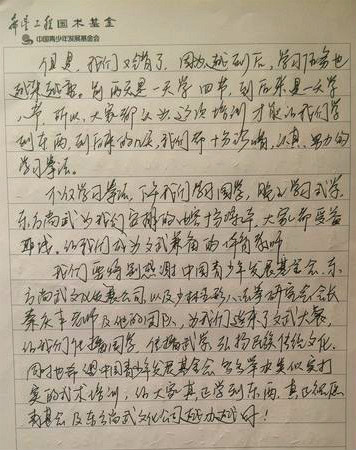 希望工程国术基金
中国青少年发展基金会
但是,我们又错了,因为越到后,学习任务也
越来越重。前两天是一天学四节,到后来是一天学
八节,所以,大家都认为这次培训才能让我们学
到东西,到后来的几天,我们都十分珍惜,认真、努力的
学习拳法。
不仅学习拳法,下午我们学习国学,晚上学习武学,
东方尚武为我们安排的课十分精彩,大家都受益
匪浅。让我们成为文武兼备的体育教师
我们要特别感谢中国青少年发展基金会、东
方尚武文化发展公司以及少林五形八法拳研究会会长
秦庆丰老师及他的团队,为我们送来了文武大餐,
让我们传播国学、传播武学、弘扬民族传统文化。
同时也希望中国青少年发展基金会 多举办类似实打
实的武术培训,让大家真正学到东西,真正祝愿
基金会及东方尚武文化公司越办越好!